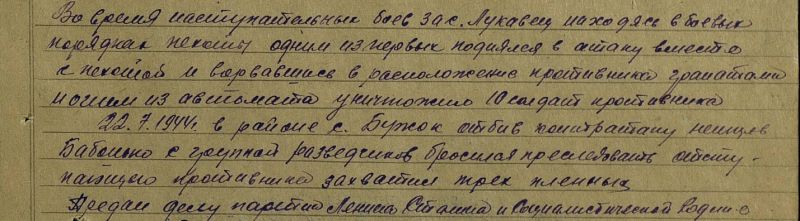 Во время наступательных боев за с. Лукавец находясь в боевых
порядках пехоты одним из первых поднялся в атаку вместе
с пехотой и ворвавшись в расположение противника гранатами
и огнем из автомата уничтожил 10 солдат противника
22.7.1944г. в районе с. Бужок отбив контратаку немцев
Бабонько с группой разведчиков бросился преследовать отсту-
пающего противника захватил трех пленных
Предан делу партии Ленина Сталина и Социалистической Родине